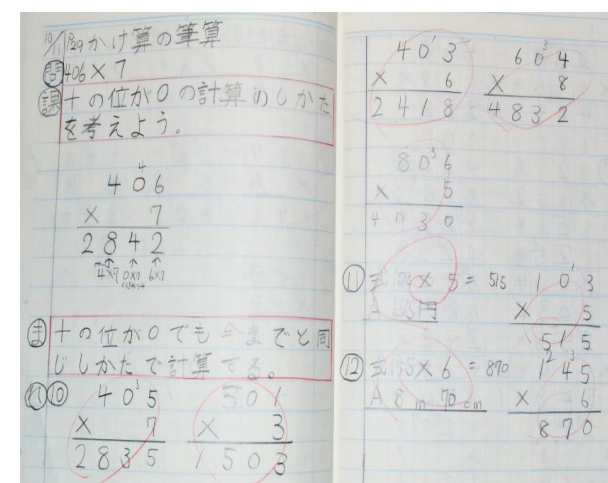 10/11 P29 かけ算の筆算
問 406×7
課 十の位が0の計算のしかた
を考えよう。
4
406
× 7
2842
4×7 0×7 6×7
ま 十の位が0でも今までと同
じしかたで計算する。
れ ⑩
3
405
× 7
2835
501
× 3
1503
1
403
× 6
2418
3
604
× 8
4832
3
806
× 5
4030
⑪ 式 103×5=515
A 515円
1
103
× 5
515
⑫ 式 145×6=870
A 8m 70cm
2 3
145
× 6
870